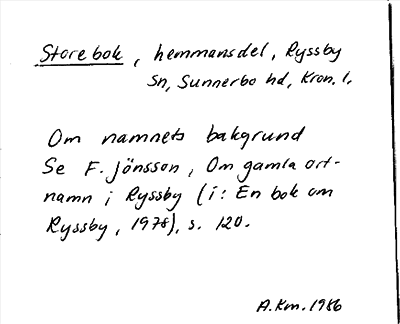 Storebok, hemmansdel, Ryssby
Sn, Sunnerbo hd, Kron. l.
Om namnets bakgrund
Se F. Jönsson, Om gamla ort-
namn i Ryssby (i: En bok om
Ryssby, 1978), s. 120.
A.Km. 1986